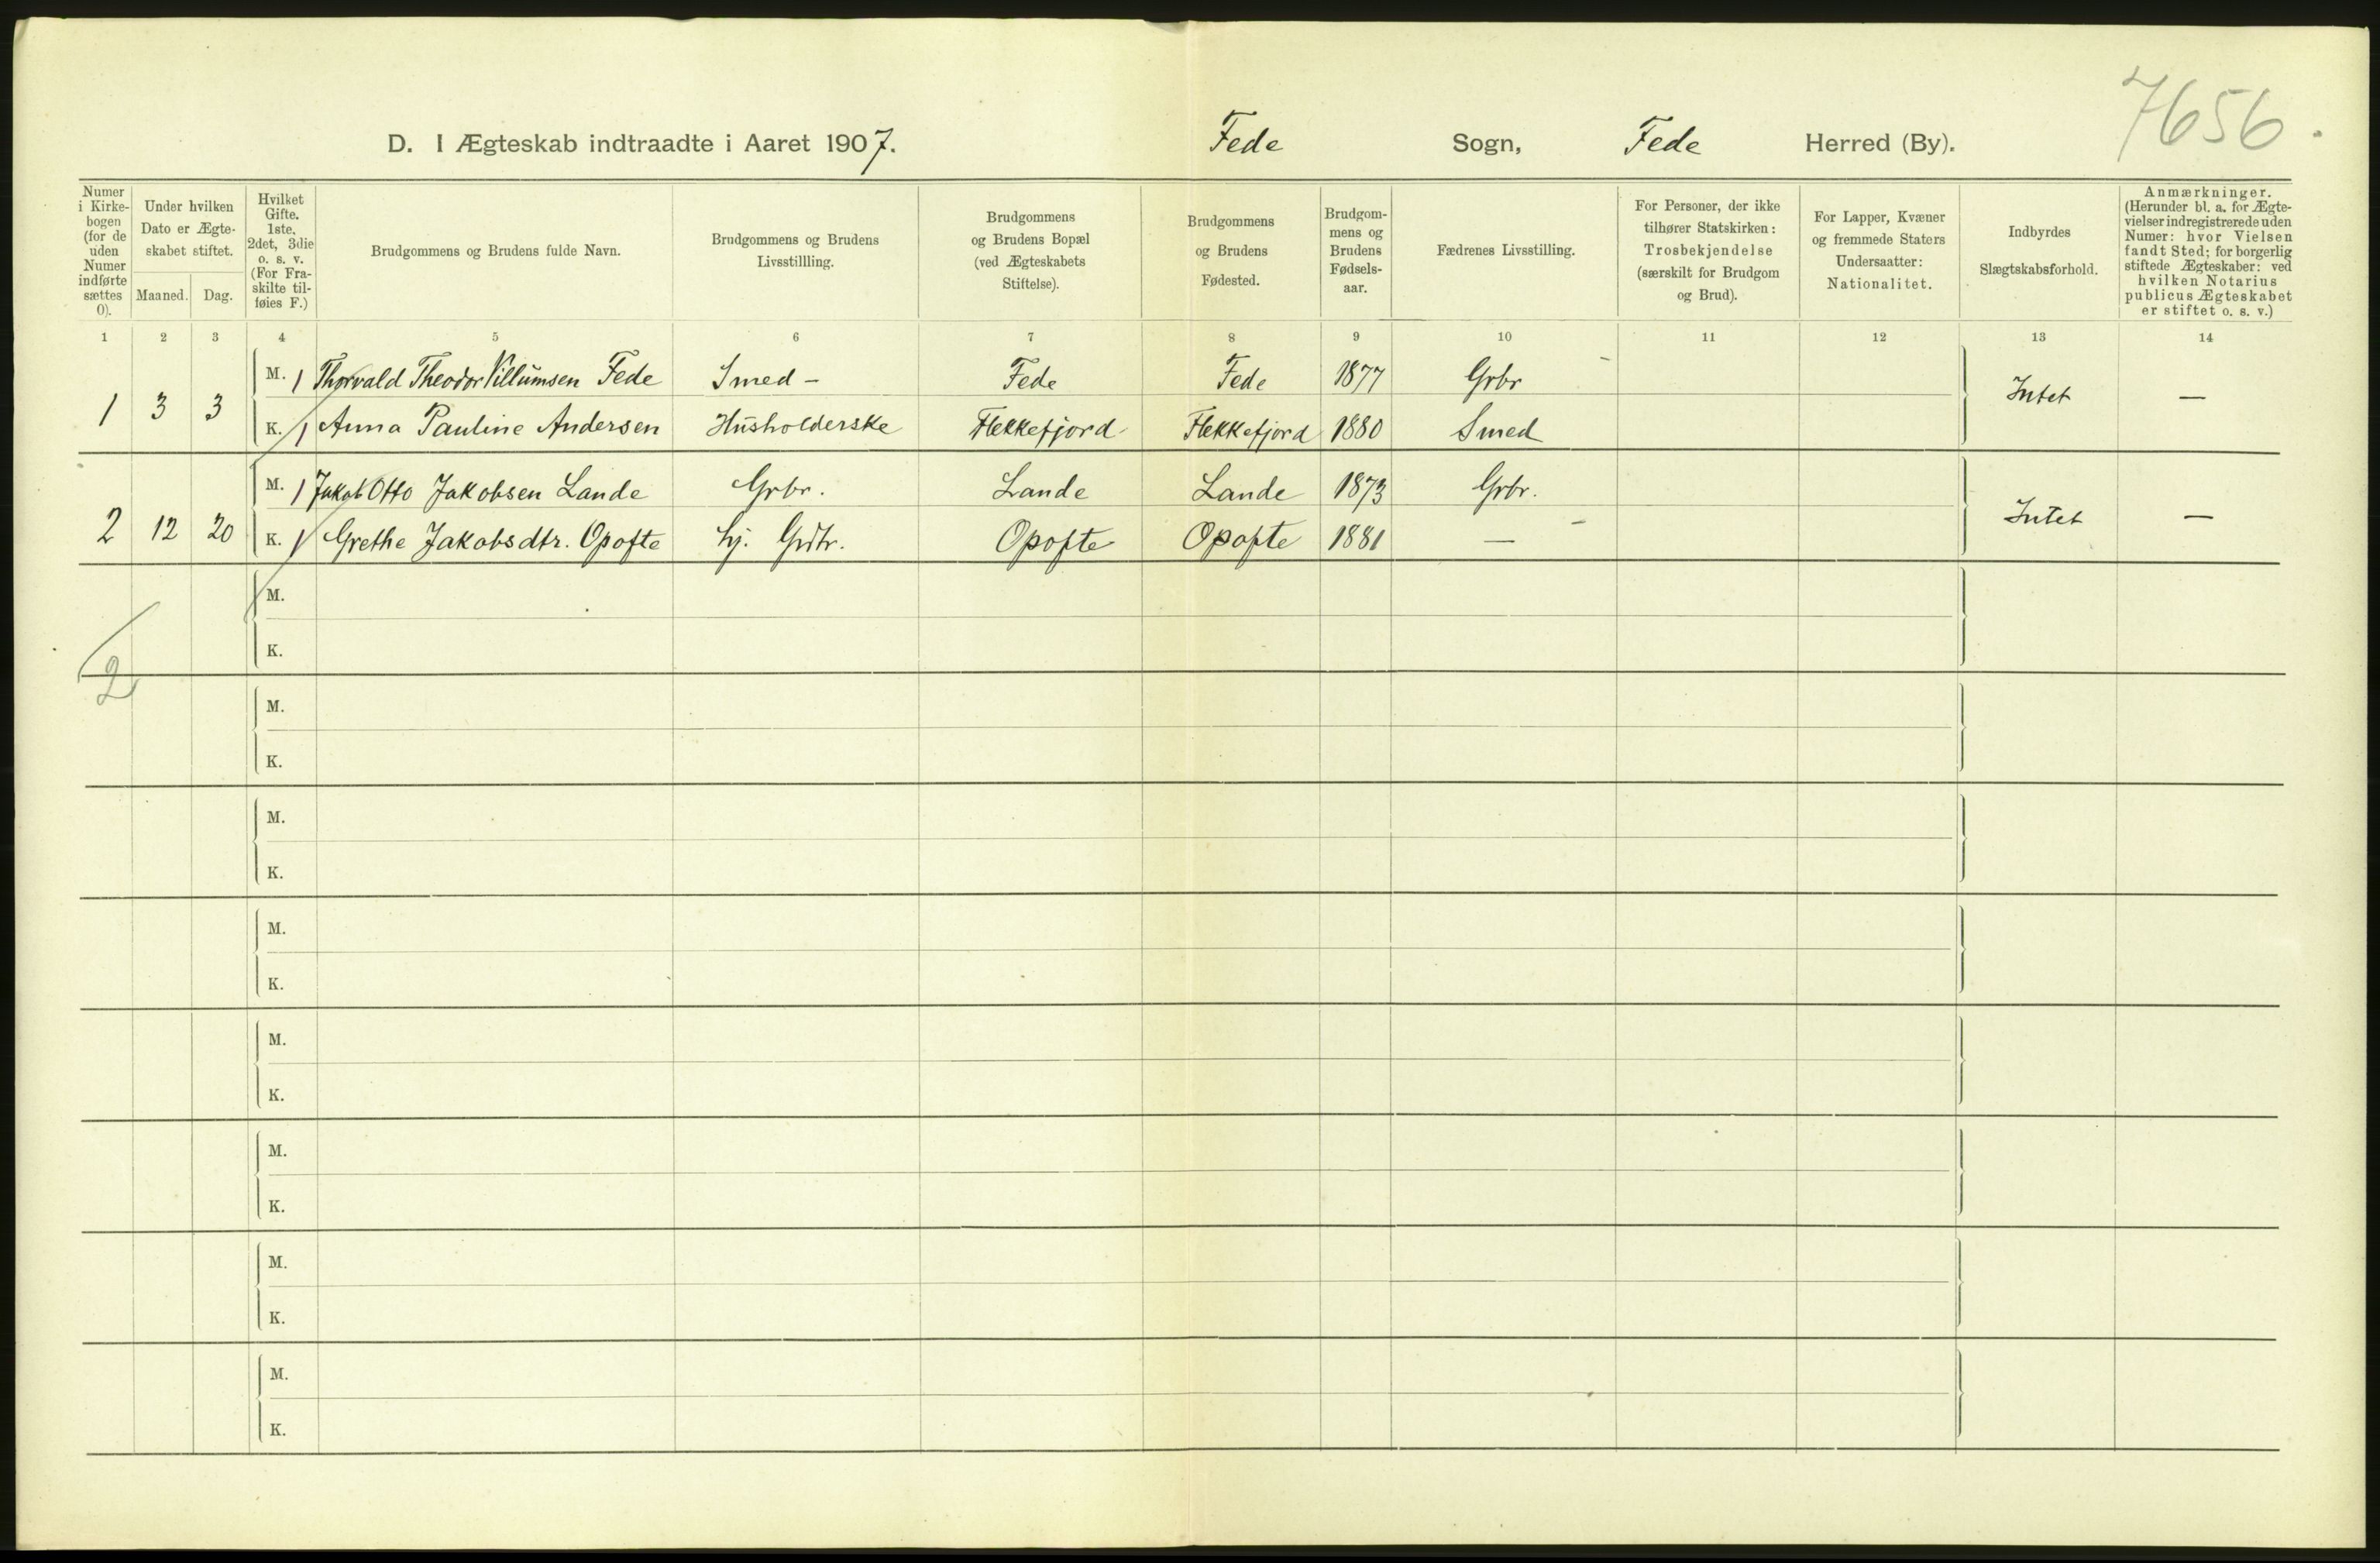 7656.
D. I Ægteskab indtraadte i Aaret 1907. Fede Sogn, Fede Herred (By).
Numer i Kirke-bogen (for de uden Numer indførte sættes 0).
Under hvilken Dato er Ægte-skabet stiftet.
Maaned. Dag.
Hvilket Gifte. 1ste, 2det, 3die o. s. v. (For Fra-skilte til-føies F.)
Brudgommens og Brudens fulde Navn.
Brudgommens og Brudens Livsstillling.
Brudgommens og Brudens Bopæl (ved Ægteskabets Stiftelse).
Brudgommens og Brudens Fødested.
Brudgom-mens og Brudens Fødsels-aar.
Fædrenes Livsstilling.
For Personer, der ikke tilhører Statskirken: Trosbekjendelse (særskilt for Brudgom og Brud).
For Lapper, Kvæner og fremmede Staters Undersaatter: Nationalitet.
Indbyrdes Slægtskabsforhold.
Anmærkninger. (Herunder bl. a. for Ægte-vielser indregistrerede uden Numer: hvor Vielsen fandt Sted; for borgerlig stiftede Ægteskaber: ved hvilken Notarius publicus Ægteskabet er stiftet o. s. v.)
1 2 3 4 5 6 7 8 9 10 11 12 13 14
M. 1 Thorvald Theodor Villumsen Fede Smed – Fede Fede 1877 Grbr
1 3 3 Intet —
K. 1 Anna Pauline Andersen Husholderske Flekkefjord Flekkefjord 1880 Smed
M. 1 Jakob Otto Jakobsen Lande Grbr. Lande Lande 1873 Grbr.
2 12 20 Intet —
K. 1 Grethe Jakobsdtr. Opofte hj. Grdtr. Opofte Opofte 1881 —
M.
K.
2
M.
K.
M.
K.
M.
K.
M.
K.
M.
K.
M.
K.
M.
K.